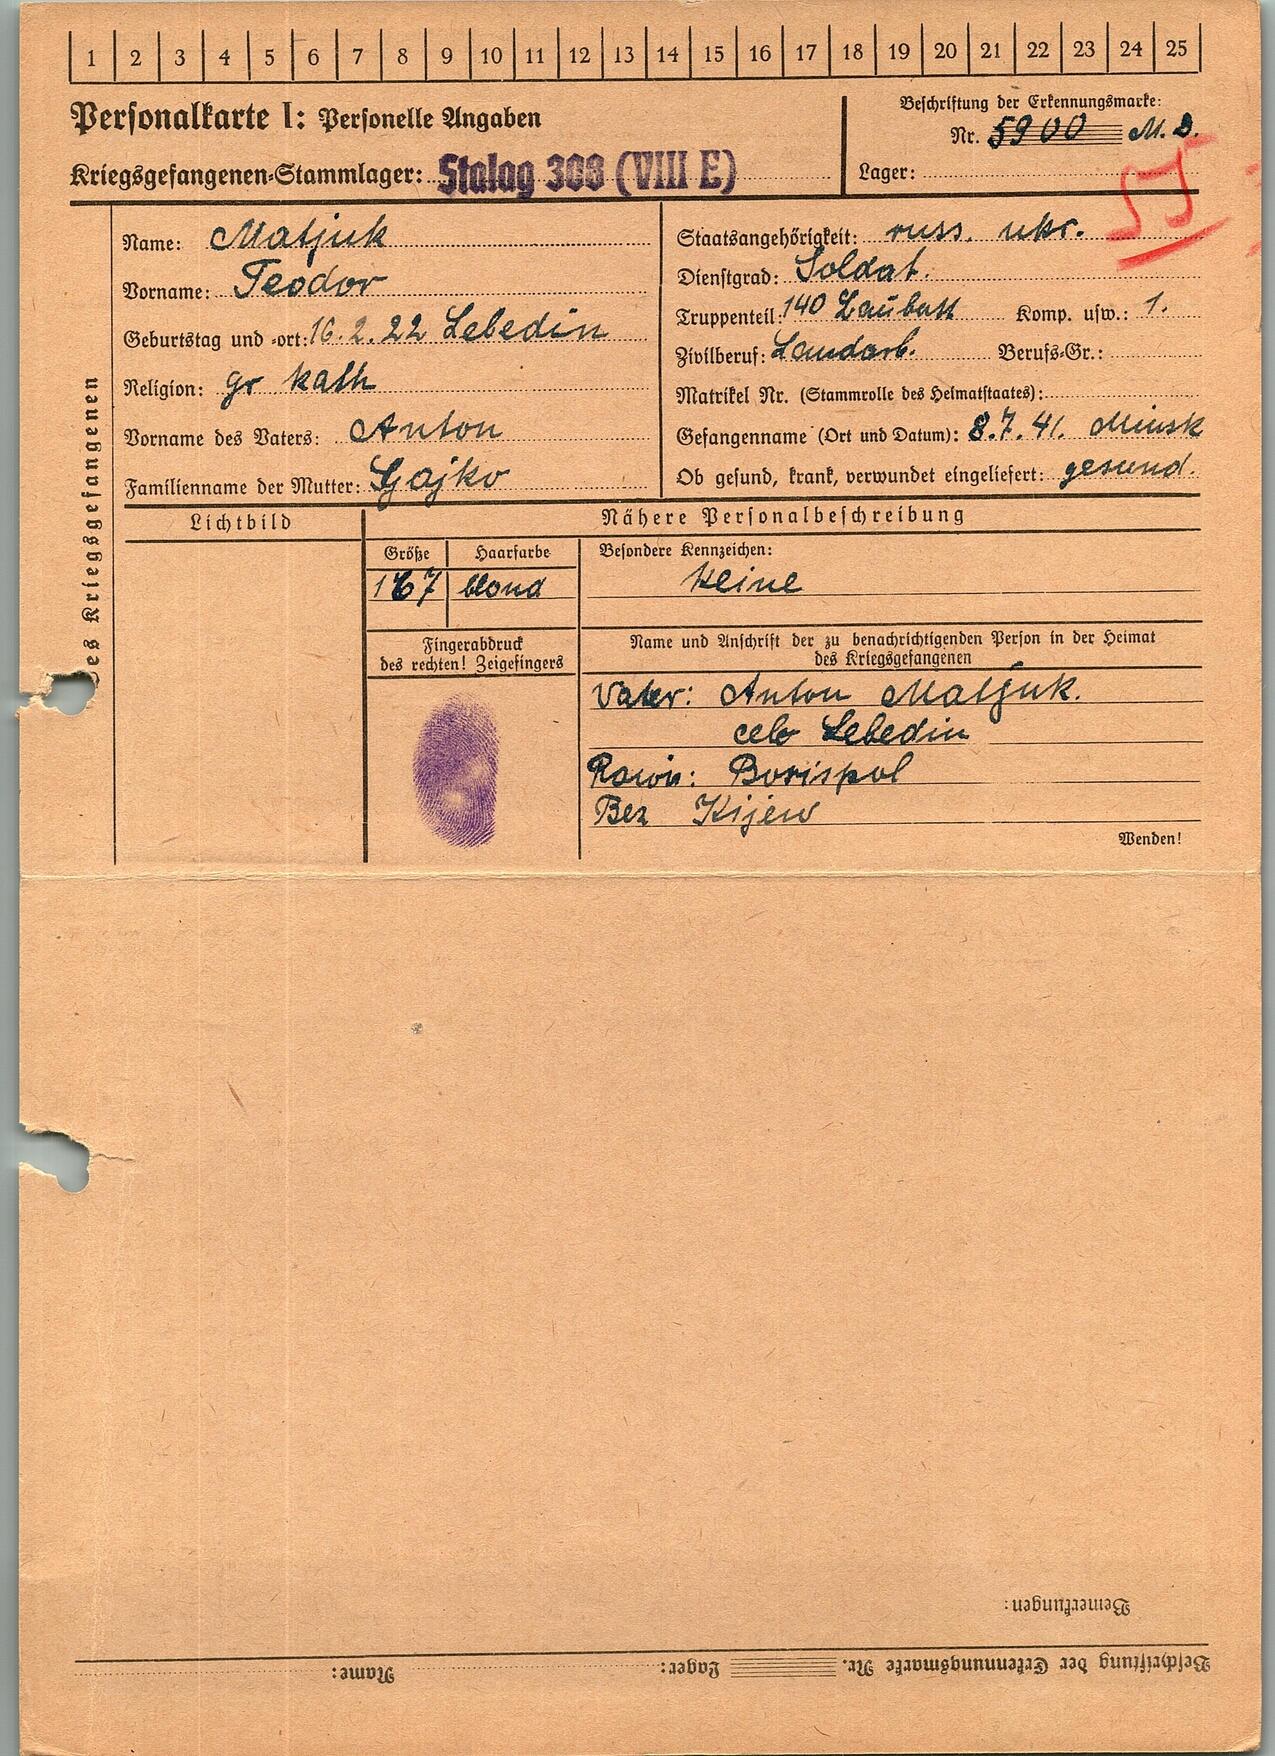 1 2 3 4 5 6 7 8 9 10 11 12 13 14 15 16 17 18 19 20 21 22 23 24 25
Personalkarte I: Personelle Angaben
Kriegsgefangenen-Stammlager: Stalag 308 (VIII E)
Beschriftung der Erkennungsmarke:
Nr. 5900 M. D.
Lager:
55
des Kriegsgefangenen
Name: Matjuk
Vorname: Teodor
Geburtstag und -ort: 16.2.22 Lebedin
Religion: gr kath
Vorname des Vaters: Anton
Familienname der Mutter: Gajko
Staatsangehörigkeit: russ. ukr.
Dienstgrad: Soldat.
Truppenteil: 140 Baubatt Komp. usw.: 1.
Zivilberuf: Landarb. Berufs-Gr.:
Matrikel Nr. (Stammrolle des Heimatstaates):
Gefangennahme (Ort und Datum): 8.7.41. Minsk
Ob gesund, krank, verwundet eingeliefert: gesund.
Lichtbild
Nähere Personalbeschreibung
Größe Haarfarbe
167 blond
Besondere Kennzeichen:
Keine
Fingerabdruck
des rechten! Zeigefingers
Name und Anschrift der zu benachrichtigenden Person in der Heimat
des Kriegsgefangenen
Vater: Anton Matjuk.
celo Lebedin
Rawon: Borispol
Bez Kijew
Wenden!
Bemerkungen:
Beschriftung der Erkennungsmarke Nr. Lager: Name: